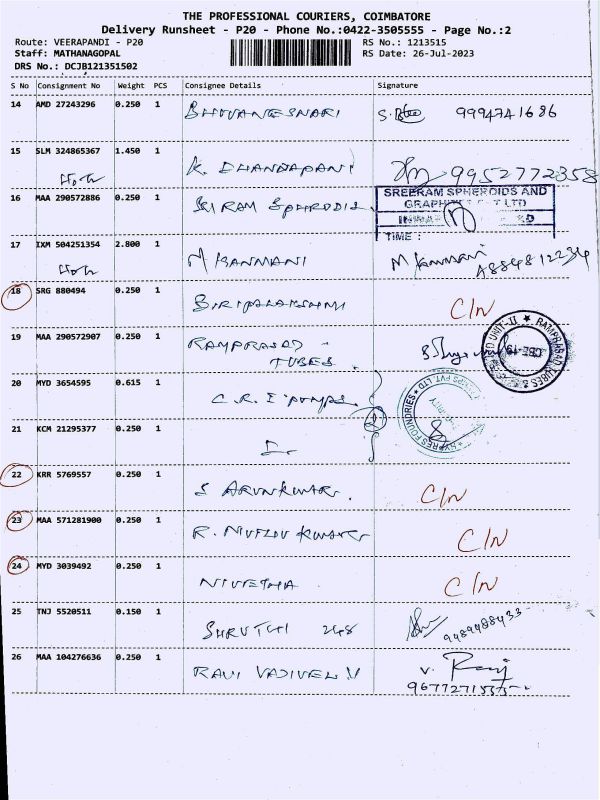 THE PROFESSIONAL COURIERS, COIMBATORE
Delivery Runsheet - P20 - Phone No.:0422-3505555 - Page No.:2
Route: VEERAPANDI - P20
RS No.: 1213515
Staff: MATHANAGOPAL
RS Date: 26-Jul-2023
DRS No.: DCJB121351502
S No Consignment No Weight PCS Consignee Details Signature
14 AMD 27243296 0.250 1 BHUVANGESWARI 9994741686
15 SLM 324865367 1.450 1 K. DHANDAPANI 9952772358
16 MAA 290572886 0.250 1 SRI RAM SPHRODIS
SREERAM SPHEROIDS AND
TIME :
17 IXM 504251354 2.800 1 M KANMANI M Kanmani
18 SRG 880494 0.250 1 SIRIJALAKSHMI C/N
19 MAA 290572907 0.250 1 RAMPRASAD TUBES
RAMPRASAD TUBES & UNIT-II
20 MYD 3654595 0.615 1 C.R.I pumps
FOUNDRIES PVT LTD
21 KCM 21295377 0.250 1
22 KRR 5769557 0.250 1 S ARUNKUMAR. C/N
23 MAA 571281900 0.250 1 C/N
24 MYD 3039492 0.250 1 NIVETHA C/N
25 TNJ 5520511 0.150 1 SHRUTHI 248 9489488433
26 MAA 104276636 0.250 1 RAVI VADIVEL V V. Ravi